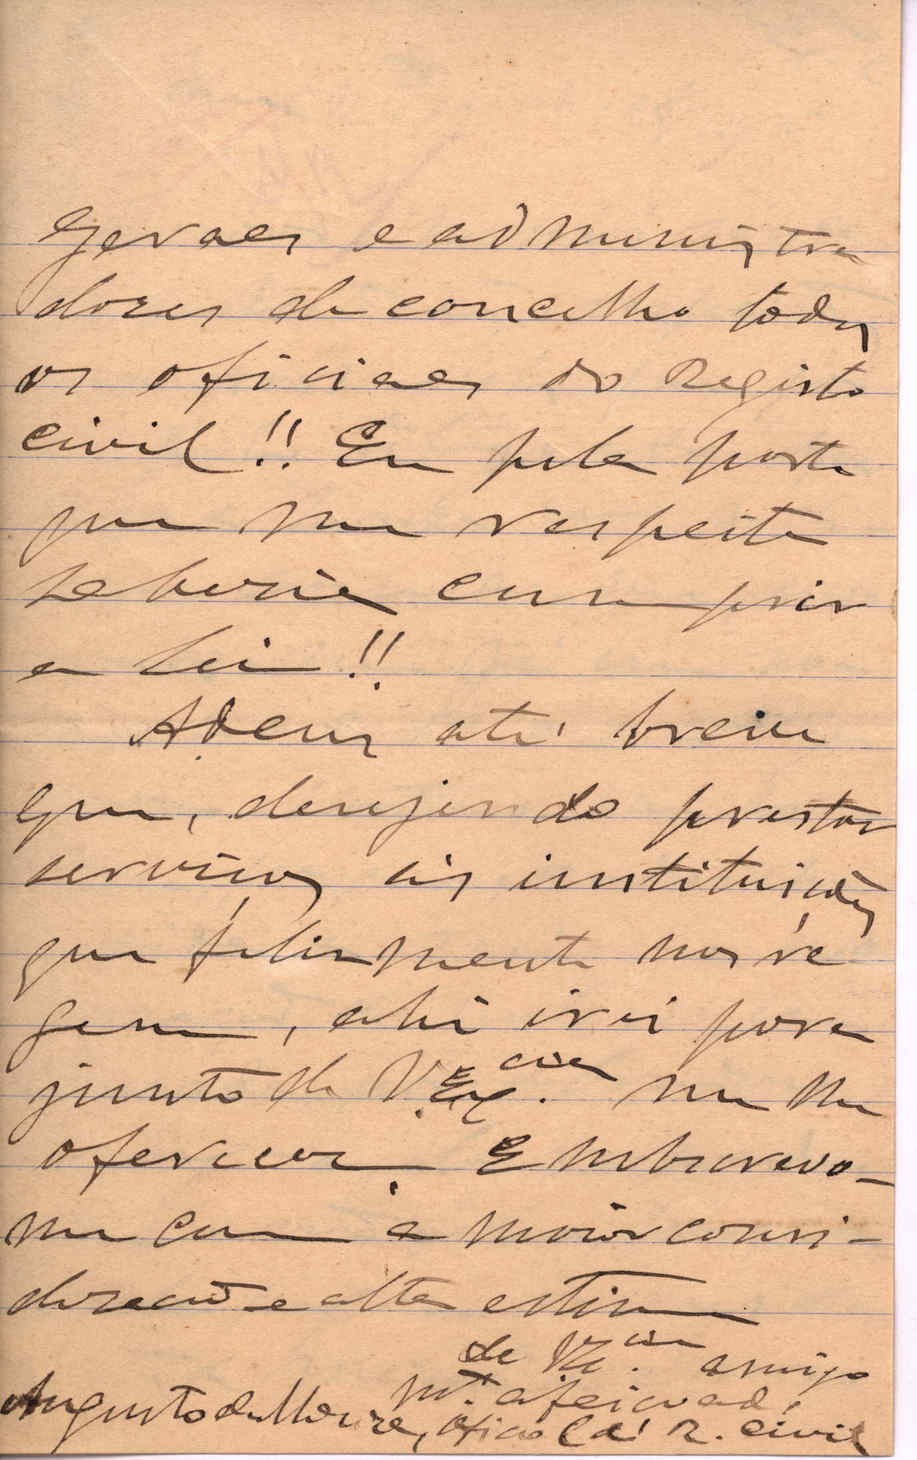 geraes e administra
dores de concelho todos
os oficiaes do Registo
civil!! Eu pela parte
que me respeita
saberia cumprir
a lei!!
Adeus até breve
que, desejando prestar
serviços ás instituições
que felizmente nos re
gem, ahi irei para
junto de V. Ex.cia me
oferecer. E subscrevo-
me com a maior consi-
deração e alta estima
de V. Ex.cia amigo
mt.º afeiçoad.
Augusto de Moura, oficial d R. civil